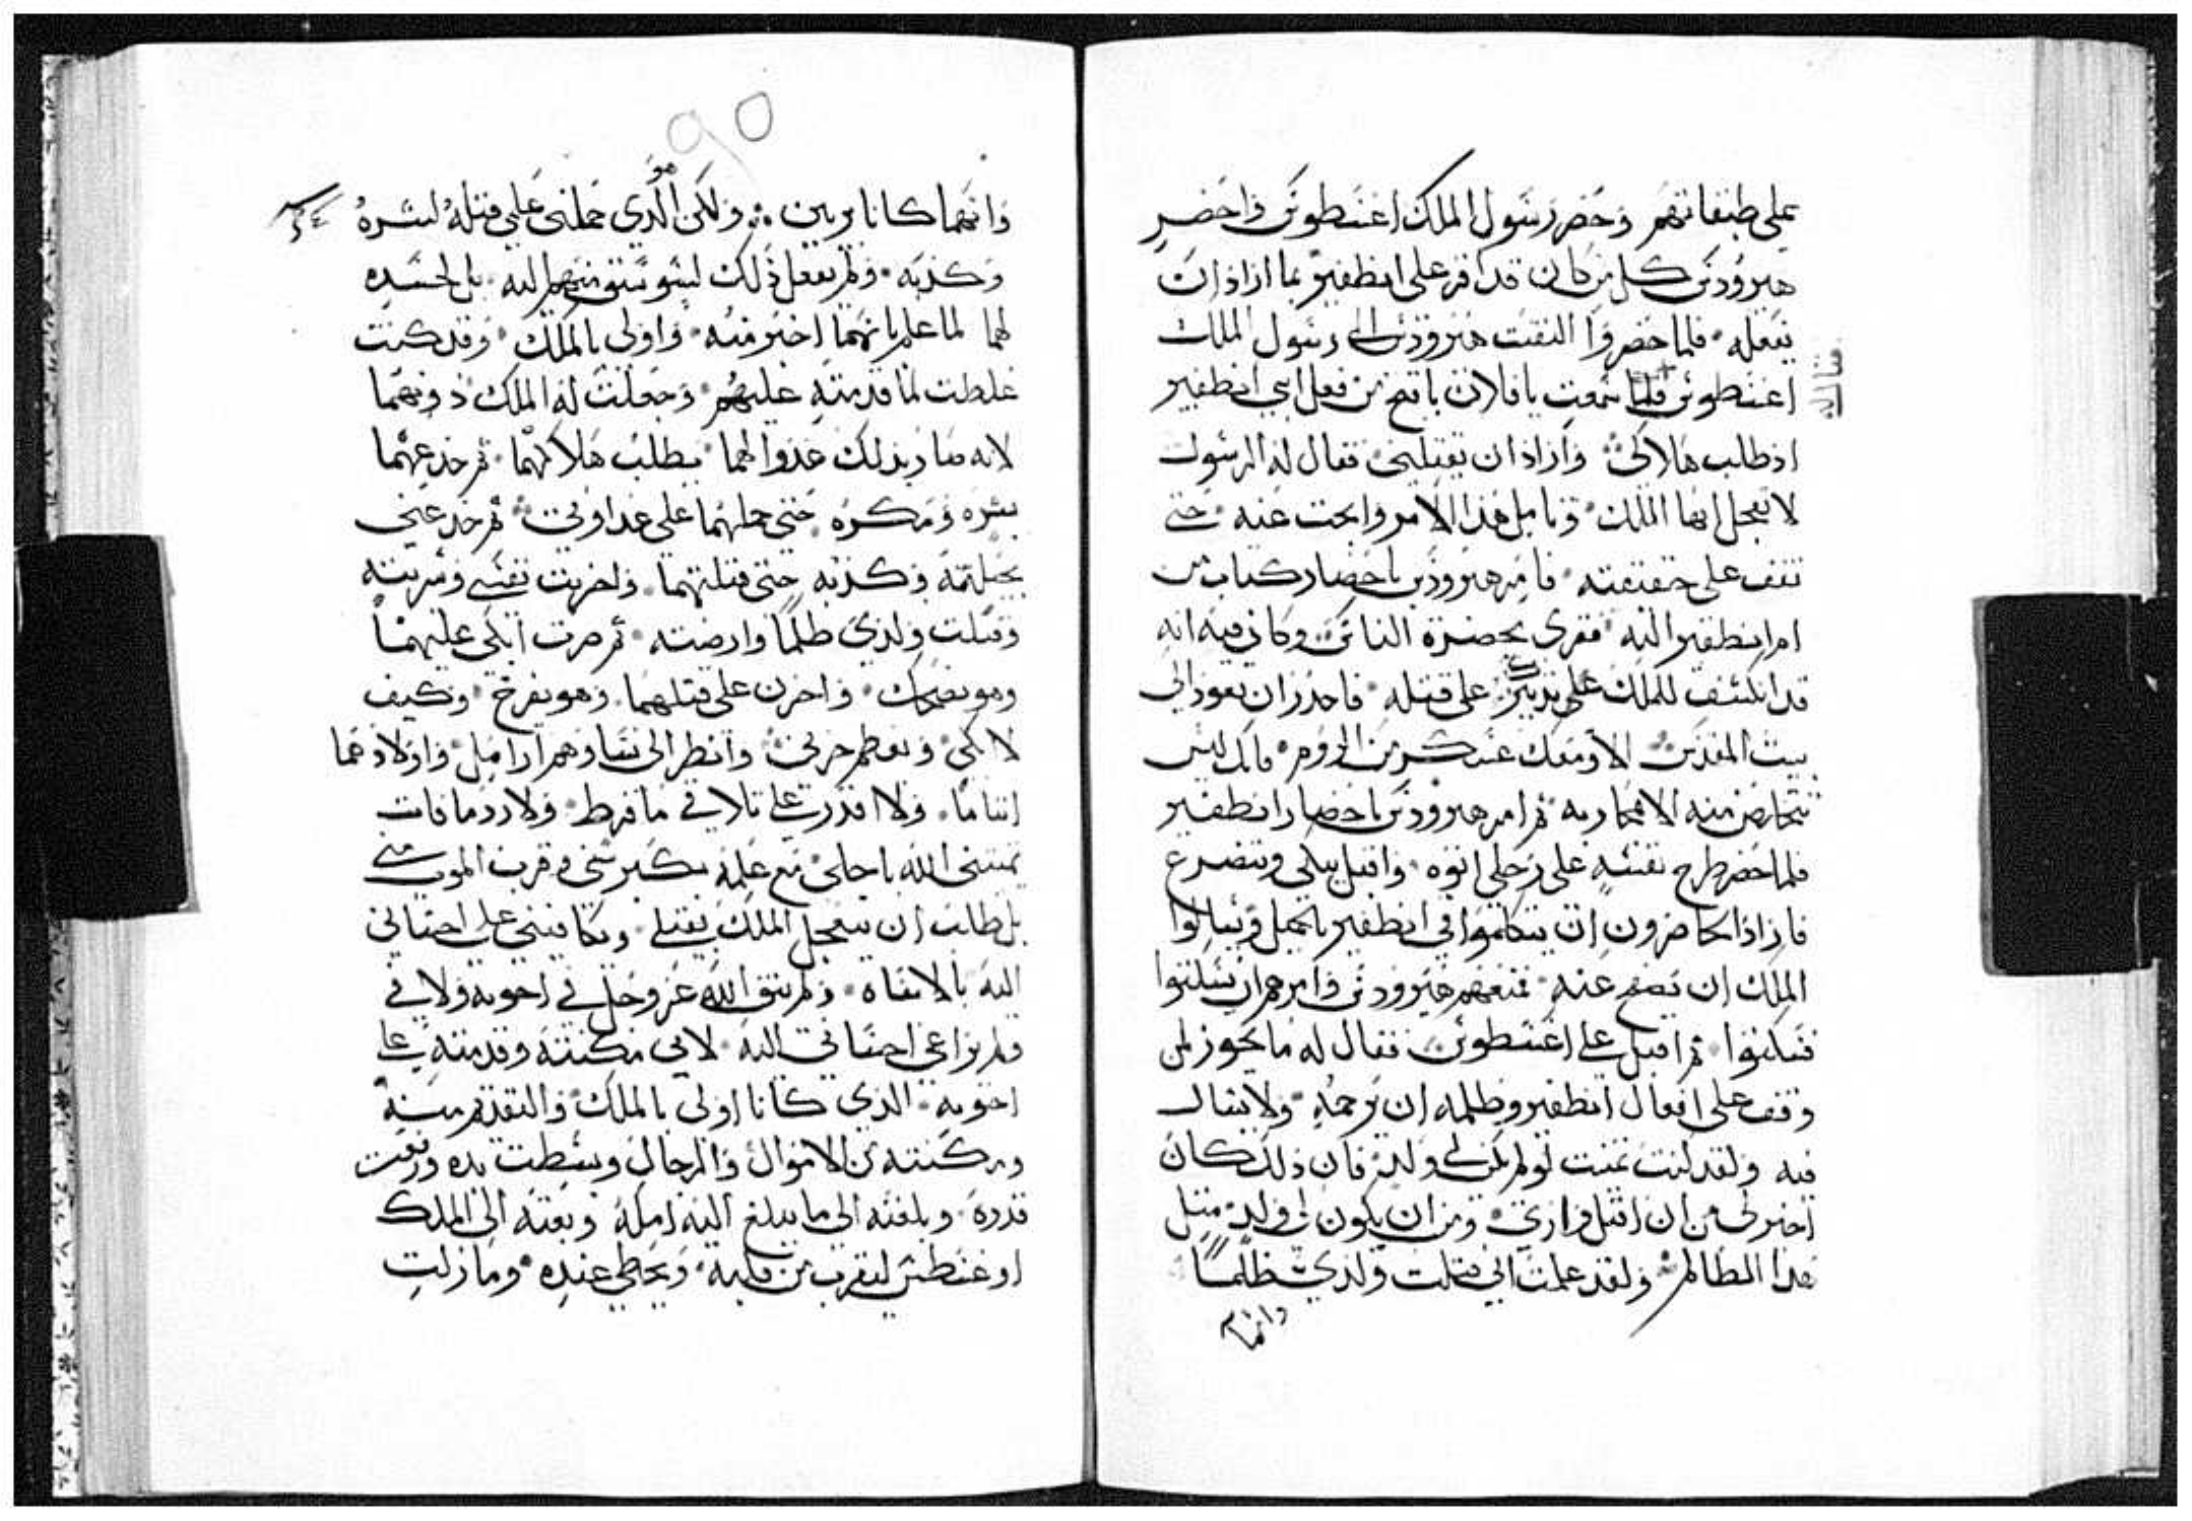 على طبقاتهم وحضر رسول الملك اغسطوس واحضر
هيرودس كل من كان قد اقر على انطفير بما اراد ان
يفعله فلما حضروا التفت هيرودس الى رسول الملك
اغسطوس فلما سمعت يا فلان باقبح من فعل ابني انطفير
فقال له
اذ طلب هلاكي واراد ان يقتلني فقال له الرسول
لا تعجل ايها الملك وتامل هذا الامر وابحث عنه حتى
تقف على حقيقته فامر هيرودس باحضار كتاب من
ام انطفير اليه فقرى بحضرة الناس وكان فيه انه
قد انكشف للملك على تدبيرك على قتله فاحذر ان تعود الى
بيت المقدس الا ومعك عسكر من الروم فانك ليس
تتخلص منه الا بمحاربه ثم امر هيرودس باحضار انطفير
فلما حضر طرح نفسه على رجلي ابوه واقبل يبكي ويتضرع
فاراد الحاضرون ان يتكلموا في انطفير بالجميل ويسالوا
الملك ان يصفح عنه فمنعهم هيرودس وامرهم ان يسكتوا
فسكتوا ثم اقبل على اغسطوس فقال له ما يجوز لمن
وقف على افعال انطفير وظلمه ان يرحمه ولا يسال
فيه ولقد كنت تمنيت لو لم يكن لي ولد فان ذلك كان
اخير لي من ان اقتل اولادي ومن ان يكون لي ولد مثل
هذا الظالم ولقد علمت اني قتلت ولدي ظلما
وانهما
وانهما كانا بريين ولكن الذي حملني على قتلهم هو لشره
وكذبه ولم يفعل ذلك لسو سبق منهم اليه بل لحسده
لهما لما علم بانهما اخير منه واولى بالملك وقد كنت
غلطت لما قدمته عليهم وجعلت له الملك دونهما
لانه صار بذلك عدوا لهما يطلب هلاكهما ثم خدعهما
بشره ومكره حتى حملهما على عداوتي ثم خدعني
بحيلته وكذبه حتى قتلتهما واخربت نفسي وسربيته
وقتلت ولدي ظلما وارضيته ثم صرت ابكي عليهما
وهو يضحك واحزن على قتلهما وهو يفرح وكيف
لا ابكي ويعظم حزني وانظر الى نساوهم ارامل واولادهما
ايتاما ولا اقدر على تلافي ما فرط ولا رد ما فات
بل طلب ان يتعجل الملك بقتلي ويكافيني على احساني
اليه بالاساه ولم يتق الله عز وجل في اخوته ولا في
ولم يراعي احساني اليه لاني مكنته وقدمته على
اخوته الذي كانا اولى بالملك والتقدم منه
ومكنته من الاموال والرجال وبسطت يده ورفعت
قدره وبلغته الى ما يبلغ اليه امله وبعثه الى الملك
اوغسطس ليتقرب من قلبه ويحظى عنده وما زلت